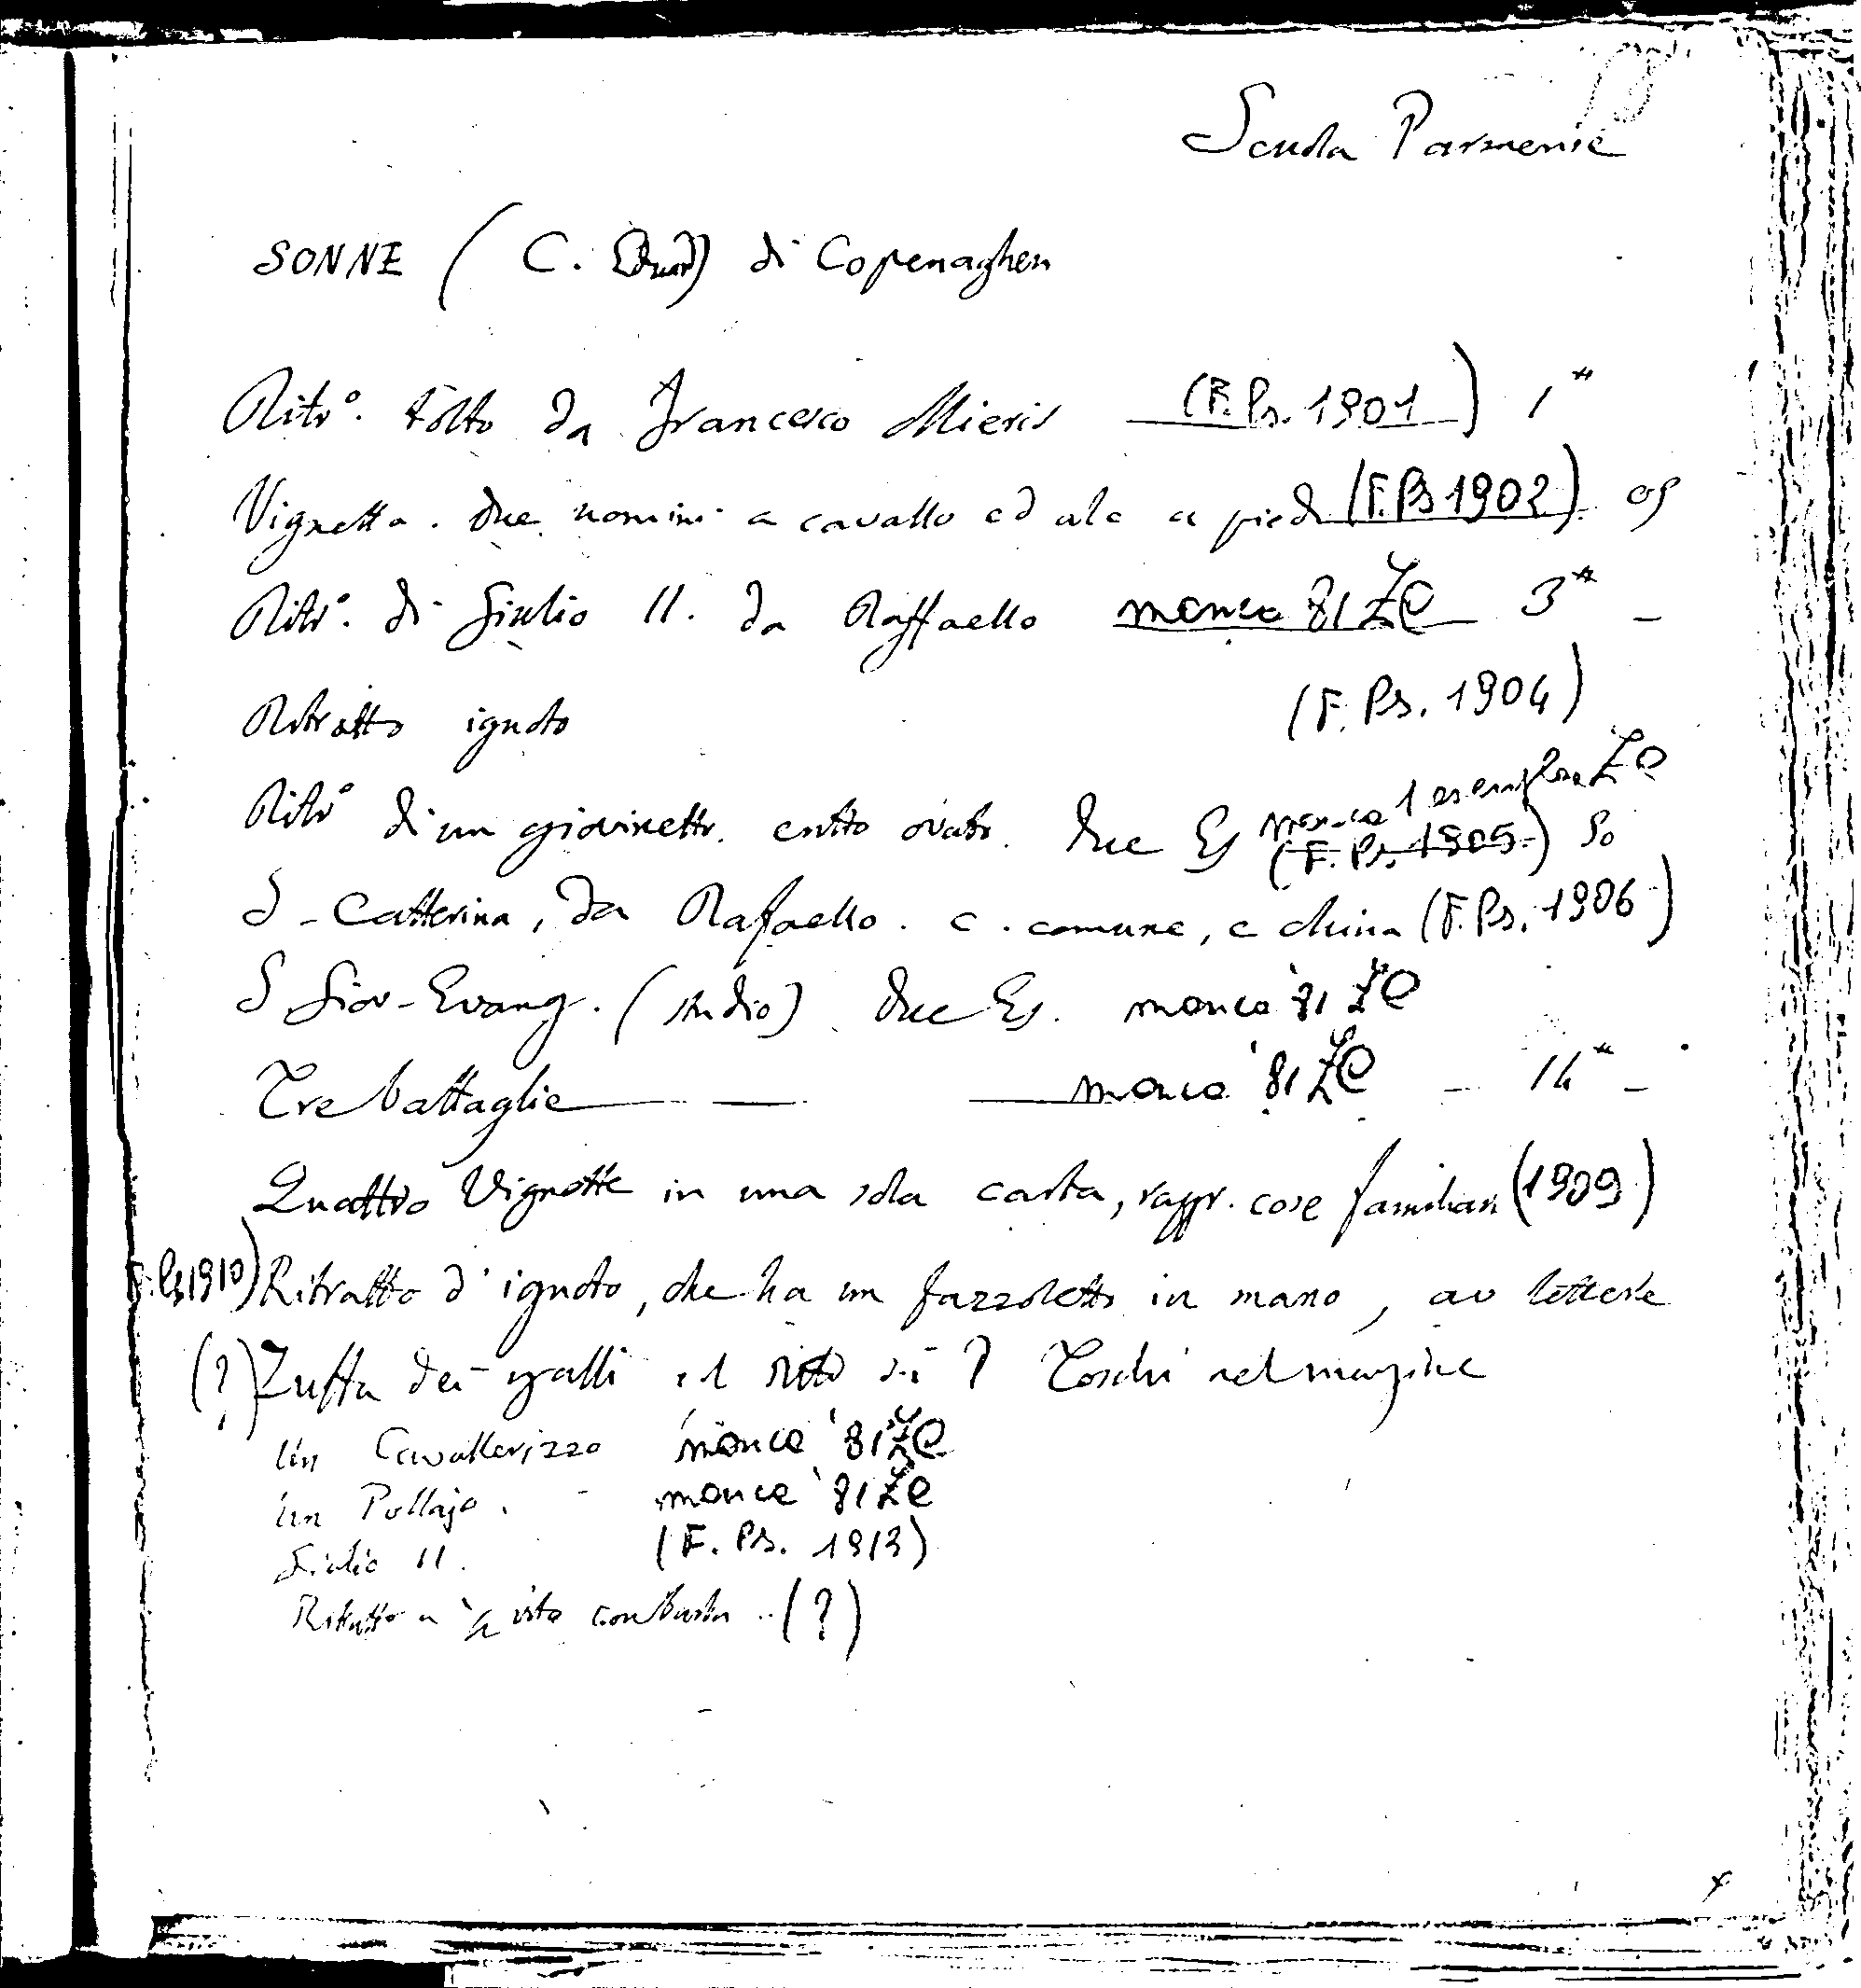 Scuola Parmense
SONNE ( C. Eduard) di Copenaghen
Ritrº. tolto da Francesco Mieris (F. Ps. 1901) 1*
Vignetta. due uomini a cavallo ed a piedi (F. Ps 1902)
Ritrº. di Giulio II. da Raffaello manca '81 ZC 3* –
Ritratto ignoto (F. Ps. 1904)
manca 1 esemplare ZC
Ritrº di un giovinetto. entro ovato. due Es (F. Ps. 1905)
S. Catterina, da Rafaello. c. comune, e china (F. Ps. 1906)
S Giov. Evang. (studio) due Es. manca '81 ZC
Tre battaglie — — manca '81 ZC – 14* –
Quattro Vignette in una sola carta, rappr. cose familiari (1909)
F. Ps 1910) Ritratto d'ignoto, che ha un fazzoletto in mano, av lettere
(?) Zuffa dei galli Toschi nel margine
Un Cavallerizzo manca '81 ZC
Un Pollajo. manca '81 ZC
Giulio II. (F. Ps. 1913)
Ritratto a (?)